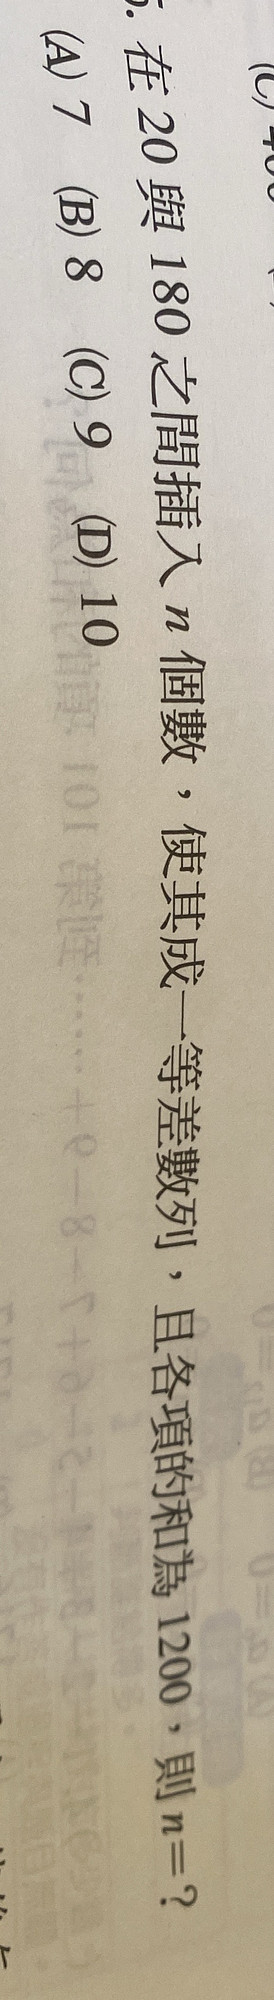 在 20 與 180 之間插入 n 個數，使其成一等差數列，且各項的和為 1200，則 n=？
(A) 7 (B) 8 (C) 9 (D) 10